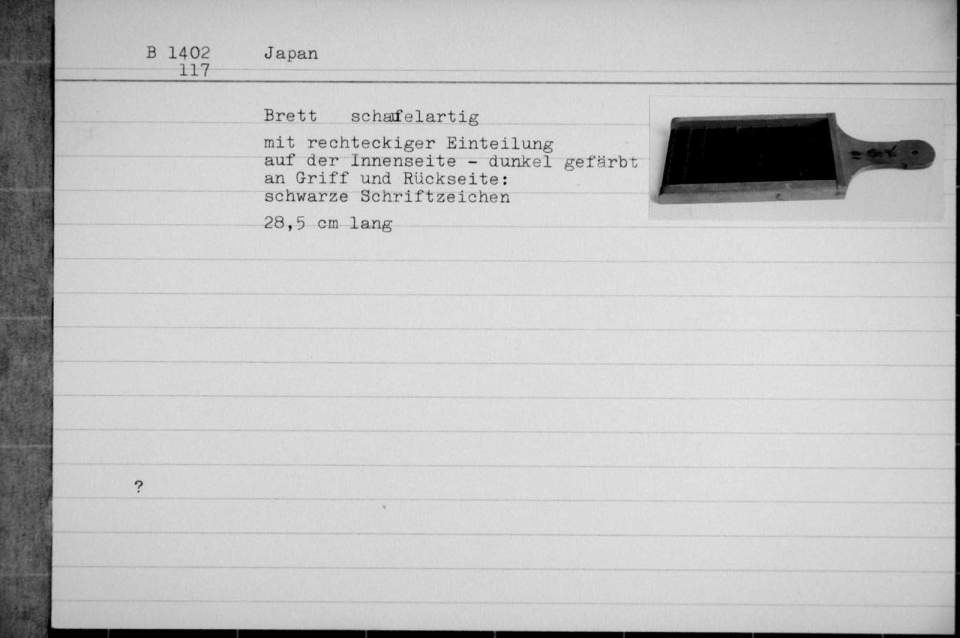 B 1402 Japan
117
Brett schaufelartig
mit rechteckiger Einteilung
auf der Innenseite - dunkel gefärbt
an Griff und Rückseite:
schwarze Schriftzeichen
28,5 cm lang
?